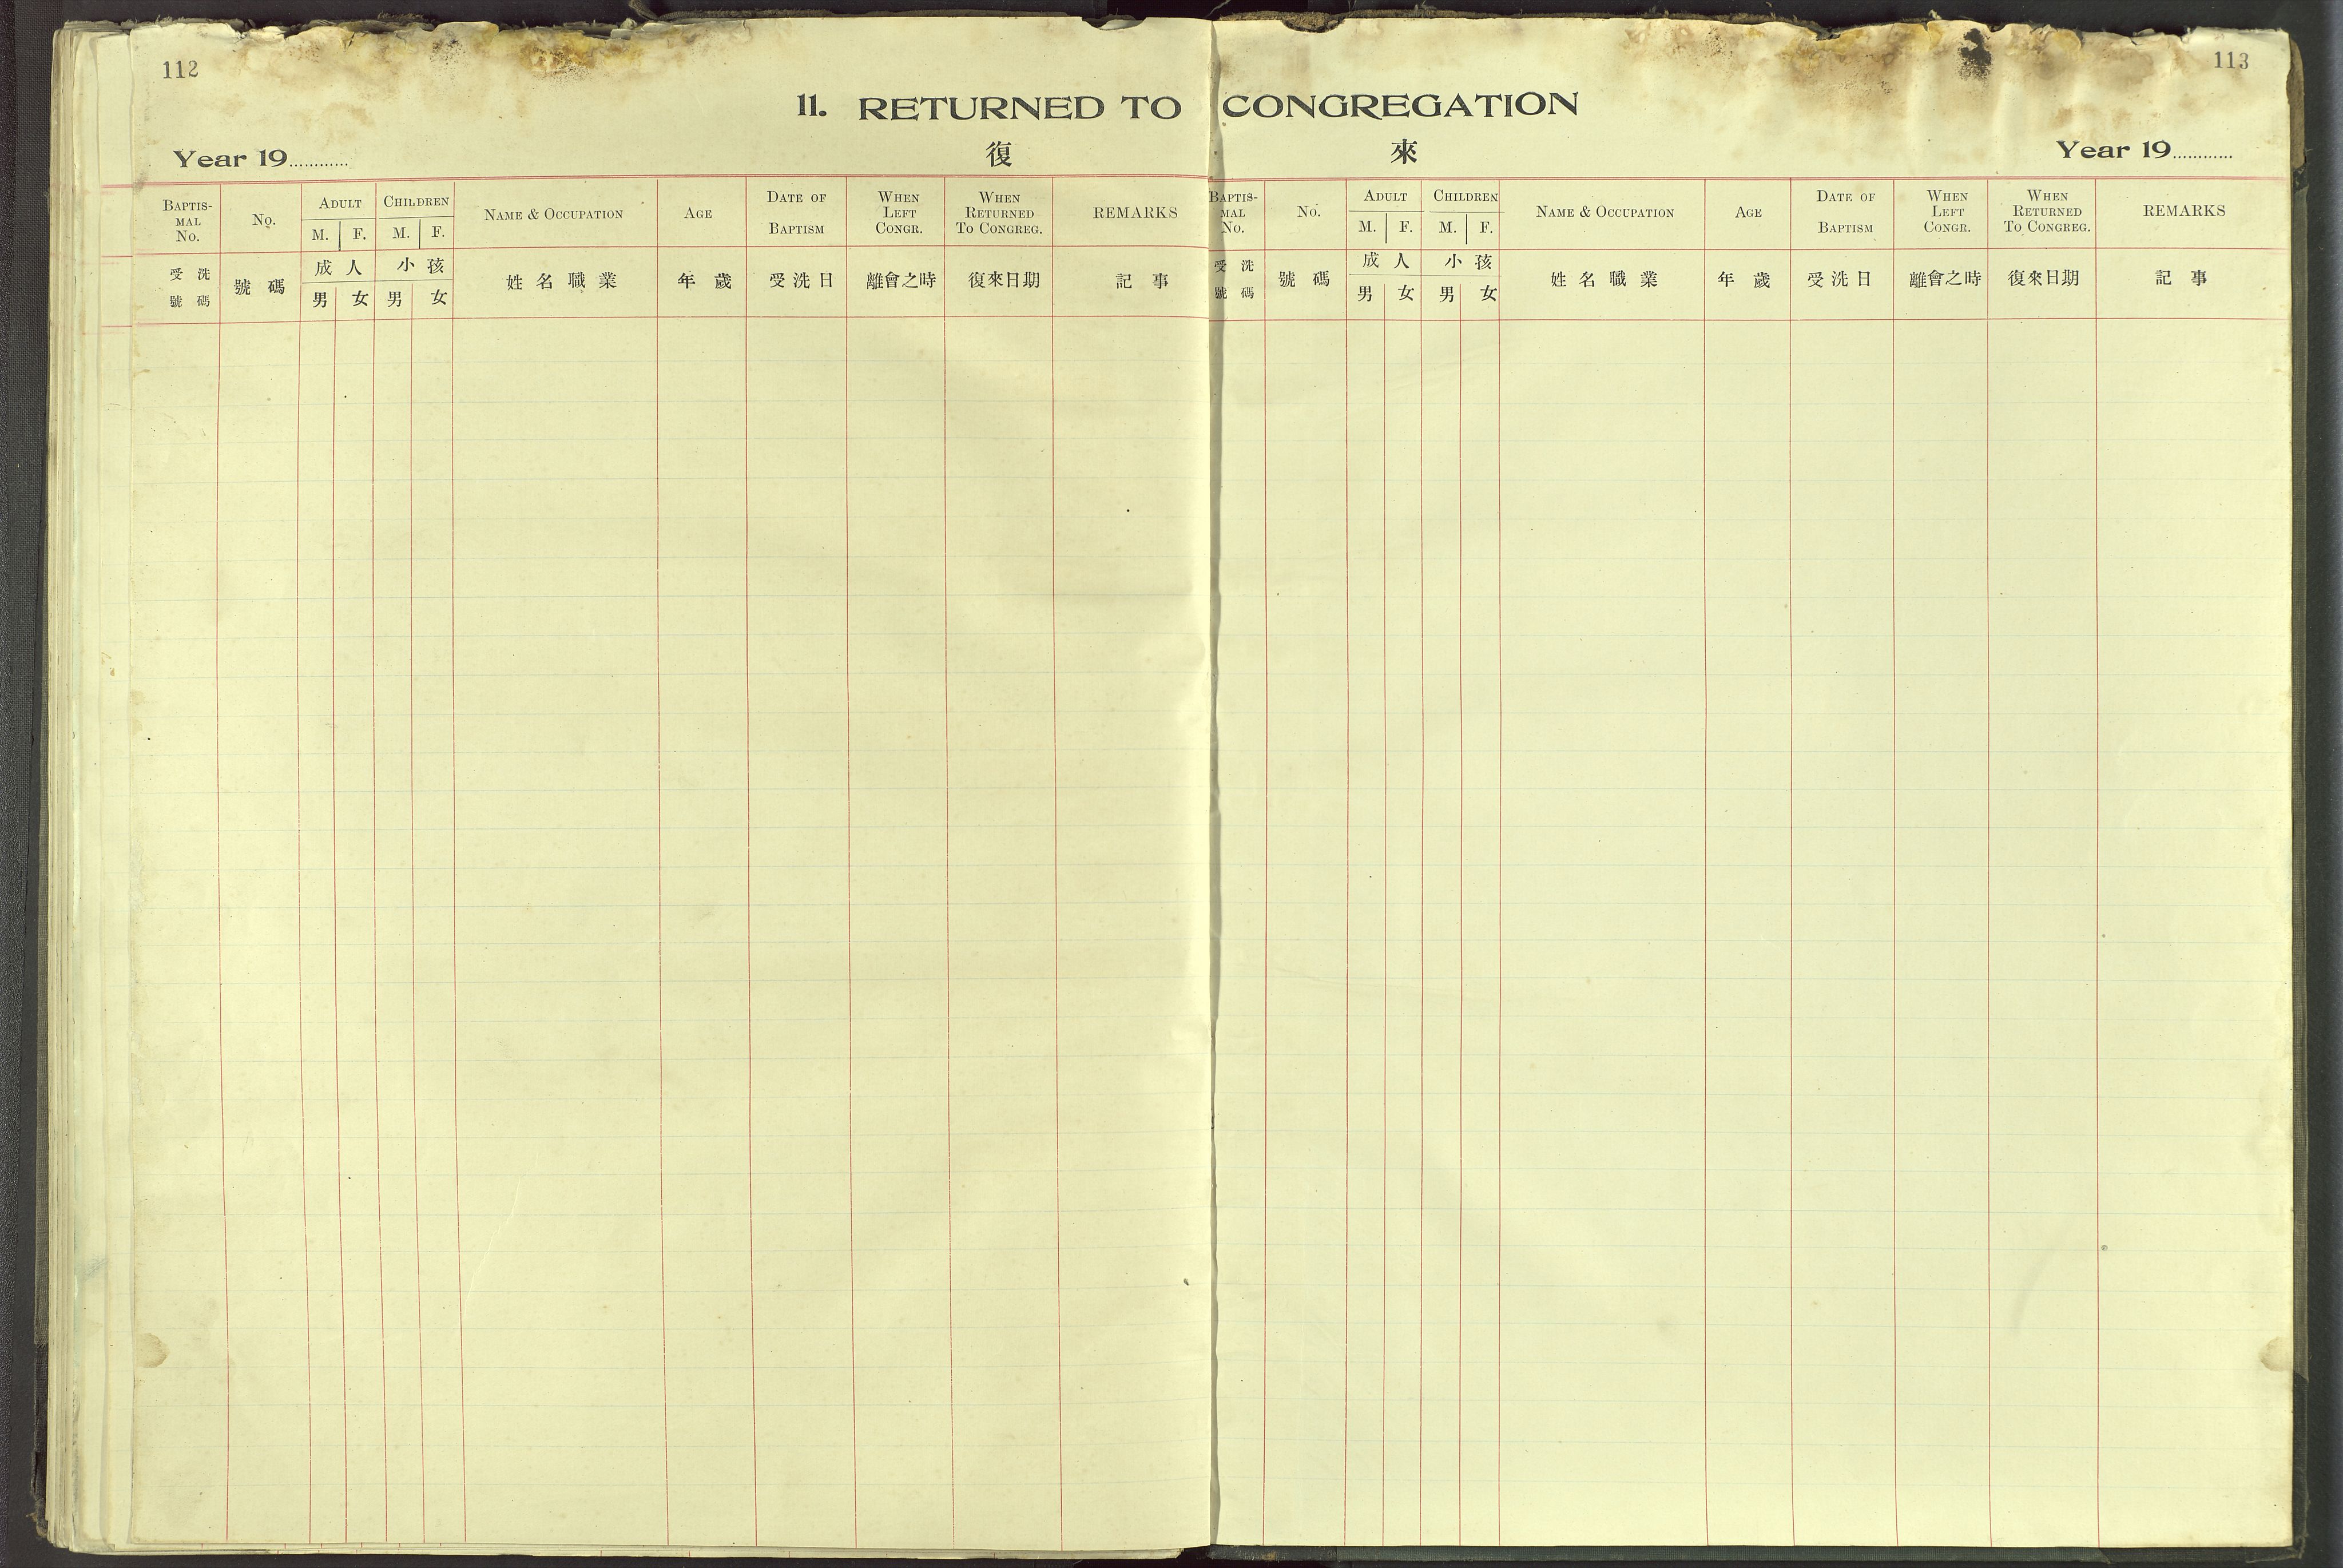 112
113
11. RETURNED TO CONGREGATION
Year 19............
復 來
Year 19............
BAPTIS-MAL No.
No.
ADULT
M. F.
CHILDREN
M. F.
NAME & OCCUPATION
AGE
DATE OF BAPTISM
WHEN LEFT CONGR.
WHEN RETURNED TO CONGREG.
REMARKS
受洗號碼
號碼
成人
男 女
小孩
男 女
姓名職業
年歲
受洗日
離會之時
復來日期
記事
BAPTIS-MAL No.
No.
ADULT
M. F.
CHILDREN
M. F.
NAME & OCCUPATION
AGE
DATE OF BAPTISM
WHEN LEFT CONGR.
WHEN RETURNED TO CONGREG.
REMARKS
受洗號碼
號碼
成人
男 女
小孩
男 女
姓名職業
年歲
受洗日
離會之時
復來日期
記事